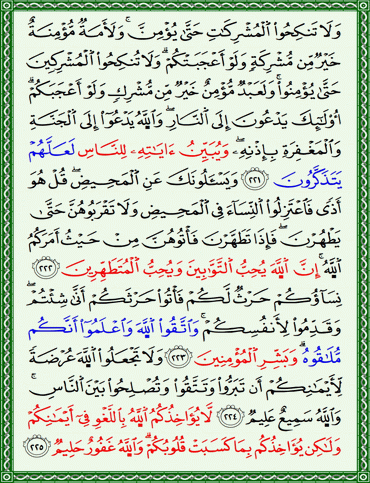 وَلَا تَنكِحُوا۟ ٱلْمُشْرِكَـٰتِ حَتَّىٰ يُؤْمِنَّ ۚ وَلَأَمَةٌ مُّؤْمِنَةٌ
خَيْرٌ مِّن مُّشْرِكَةٍ وَلَوْ أَعْجَبَتْكُمْ ۗ وَلَا تُنكِحُوا۟ ٱلْمُشْرِكِينَ
حَتَّىٰ يُؤْمِنُوا۟ ۚ وَلَعَبْدٌ مُّؤْمِنٌ خَيْرٌ مِّن مُّشْرِكٍ وَلَوْ أَعْجَبَكُمْ ۗ
أُو۟لَـٰٓئِكَ يَدْعُونَ إِلَى ٱلنَّارِ ۖ وَٱللَّهُ يَدْعُوٓا۟ إِلَى ٱلْجَنَّةِ
وَٱلْمَغْفِرَةِ بِإِذْنِهِۦ ۖ وَيُبَيِّنُ ءَايَـٰتِهِۦ لِلنَّاسِ لَعَلَّهُمْ
يَتَذَكَّرُونَ ﴿٢٢١﴾ وَيَسْـَٔلُونَكَ عَنِ ٱلْمَحِيضِ ۖ قُلْ هُوَ
أَذًى فَٱعْتَزِلُوا۟ ٱلنِّسَآءَ فِى ٱلْمَحِيضِ ۖ وَلَا تَقْرَبُوهُنَّ حَتَّىٰ
يَطْهُرْنَ ۖ فَإِذَا تَطَهَّرْنَ فَأْتُوهُنَّ مِنْ حَيْثُ أَمَرَكُمُ
ٱللَّهُ ۚ إِنَّ ٱللَّهَ يُحِبُّ ٱلتَّوَّٰبِينَ وَيُحِبُّ ٱلْمُتَطَهِّرِينَ ﴿٢٢٢﴾
نِسَآؤُكُمْ حَرْثٌ لَّكُمْ فَأْتُوا۟ حَرْثَكُمْ أَنَّىٰ شِئْتُمْ ۖ
وَقَدِّمُوا۟ لِأَنفُسِكُمْ ۚ وَٱتَّقُوا۟ ٱللَّهَ وَٱعْلَمُوٓا۟ أَنَّكُم
مُّلَـٰقُوهُ ۗ وَبَشِّرِ ٱلْمُؤْمِنِينَ ﴿٢٢٣﴾ وَلَا تَجْعَلُوا۟ ٱللَّهَ عُرْضَةً
لِّأَيْمَـٰنِكُمْ أَن تَبَرُّوا۟ وَتَتَّقُوا۟ وَتُصْلِحُوا۟ بَيْنَ ٱلنَّاسِ ۗ
وَٱللَّهُ سَمِيعٌ عَلِيمٌ ﴿٢٢٤﴾ لَّا يُؤَاخِذُكُمُ ٱللَّهُ بِٱللَّغْوِ فِىٓ أَيْمَـٰنِكُمْ
وَلَـٰكِن يُؤَاخِذُكُم بِمَا كَسَبَتْ قُلُوبُكُمْ ۗ وَٱللَّهُ غَفُورٌ حَلِيمٌ ﴿٢٢٥﴾